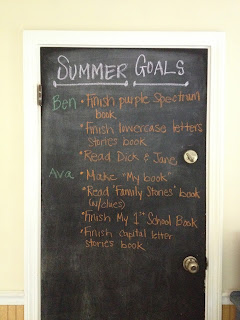 SUMMER GOALS
Ben • Finish purple Spectrum
book
• Finish lowercase letters
stories book
• Read Dick & Jane
Ava • Make "My book"
• Read 'Family Stories' book
(w/clues)
• Finish My 1st School Book
• Finish capital letter
stories book